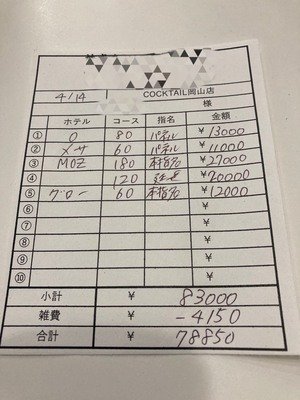 COCKTAIL岡山店
4/14
様
ホテル コース 指名 金額
① O 80 パネル ¥ 13000
② メサ 60 パネル ¥ 11000
③ MOZ 180 本指名 ¥ 27000
④ 120 ¥ 20000
⑤ グロー 60 本指名 ¥ 12000
⑥ ¥
⑦ ¥
⑧ ¥
⑨ ¥
⑩ ¥
小計 ¥ 83000
雑費 ¥ -4150
合計 ¥ 78850